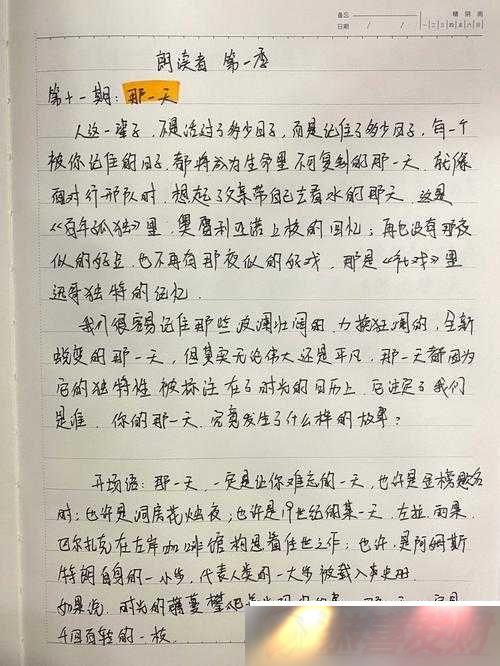 备忘 晴 阴 雨
日期 / / 一 二 三 四 五 六 日
朗读者 第一季
第十一期：那一天
人这一辈子，不是活过了多少日子，而是记住了多少日子，每一个
被你记住的日子都将成为生命里不可复制的那一天。就像
面对行刑队时，想起了父亲带自己去看冰的那天，这是
《百年孤独》里，奥雷利亚诺上校的回忆；再也没有那夜
似的好豆，也不再有那夜似的好戏，那是《社戏》里
迅哥独特的记忆。
我们很容易记住那些波澜壮阔的，力挽狂澜的，全新
蜕变的那一天，但其实无论伟大还是平凡，那一天都因为
它的独特性被标注在了时光的日历上，它决定了我们
是谁，你的那一天，究竟发生了什么样的故事？
开场语：那一天，一定是让你难忘的一天，也许是金榜题名
时；也许是洞房花烛夜；也许是19世纪的某一天，左拉，雨果，
巴尔扎克在左岸咖啡馆构思着传世之作；也许，是阿姆斯
特朗自身的一小步，代表人类的一大步被载入史册
如果说，时光的藤蔓攀
千回百转的一枝.